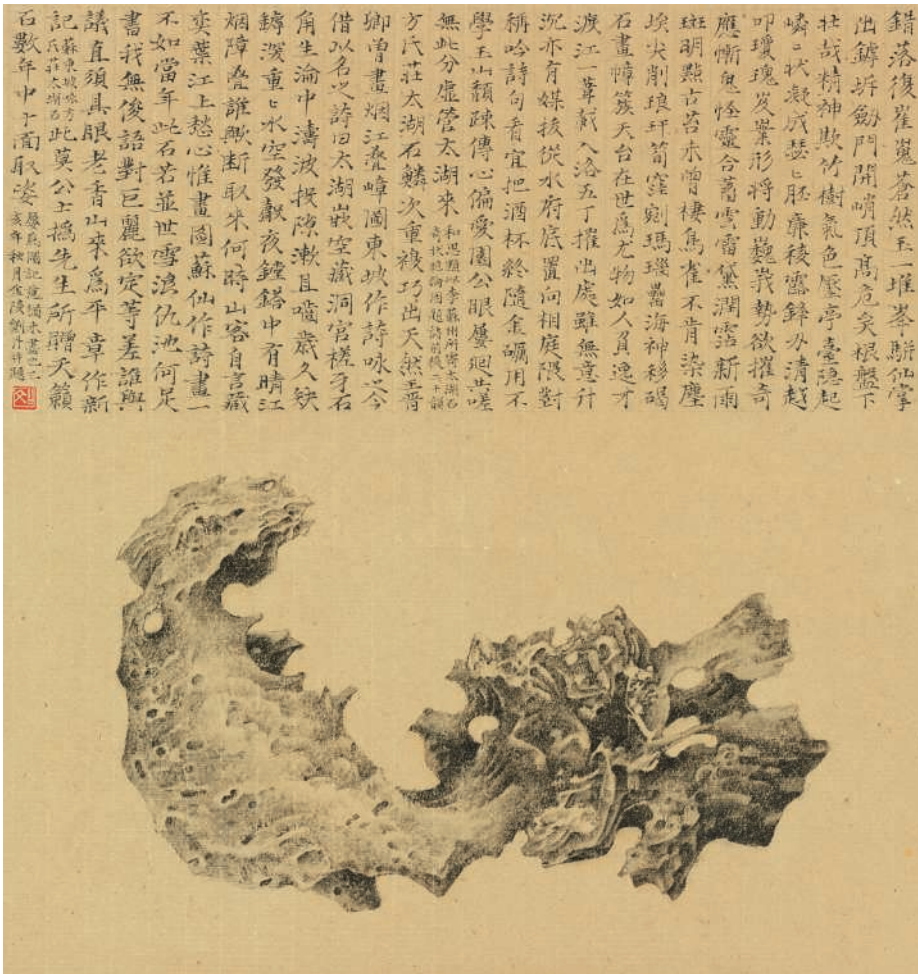 錯落復崔嵬蒼然玉一堆峯駢仙掌
出罅坼劔門開峭頂髙危矣根盤下
壯哉精神欺竹樹氣色壓亭臺隱起
嶙〻状凝成瑟〻胚廉稜露鋒刃清越
叩瓊瑰岌嶪形将動巍峩勢欲摧奇
應慚鬼怪靈合蓄雲雷黛潤霑新雨
斑明點古苔未曾棲鳥雀不肯染塵
埃尖削琅玕筍窪剜瑪瑙罍海神移碣
石畫幛簇天台在世爲尤物如人負逸才
渡江一葦載入洛五丁摧出處雖無意升
沉亦有媒拔從水府底置向相庭隈對
稱吟詩句看宜把酒杯終隨金礪用不
學玉山頽疎傳心偏愛園公眼屢迴共嗟
無此分虛管太湖来
和思黯以李蘇州所寄太湖石
奇状絕倫因題詩前後二十韻
方氏莊太湖石鱗次重複巧出天然王晋
卿曽畫烟江叠嶂圖東坡作詩咏之今
借以名之詩曰太湖嵌空藏洞宫槎牙石
角生淪中濤波投隙漱且嚙歲久缺
罅深重〻水空發聲夜鏜鎝中有晴江
烟障叠誰歟斷取来何時山客自言藏
奕葉江上愁心惟畫圖蘇仙作詩畫一
不如當年此石若並世雪浪仇池何足
書我無俊語對巨麗欲定等差誰與
議直須具眼老香山来爲平章作新
記
蘇東坡咏方
氏莊太湖石
此莫公士撝先生所贈天籟
石數年中十面取姿
亥年秋月金陵劉丹并題